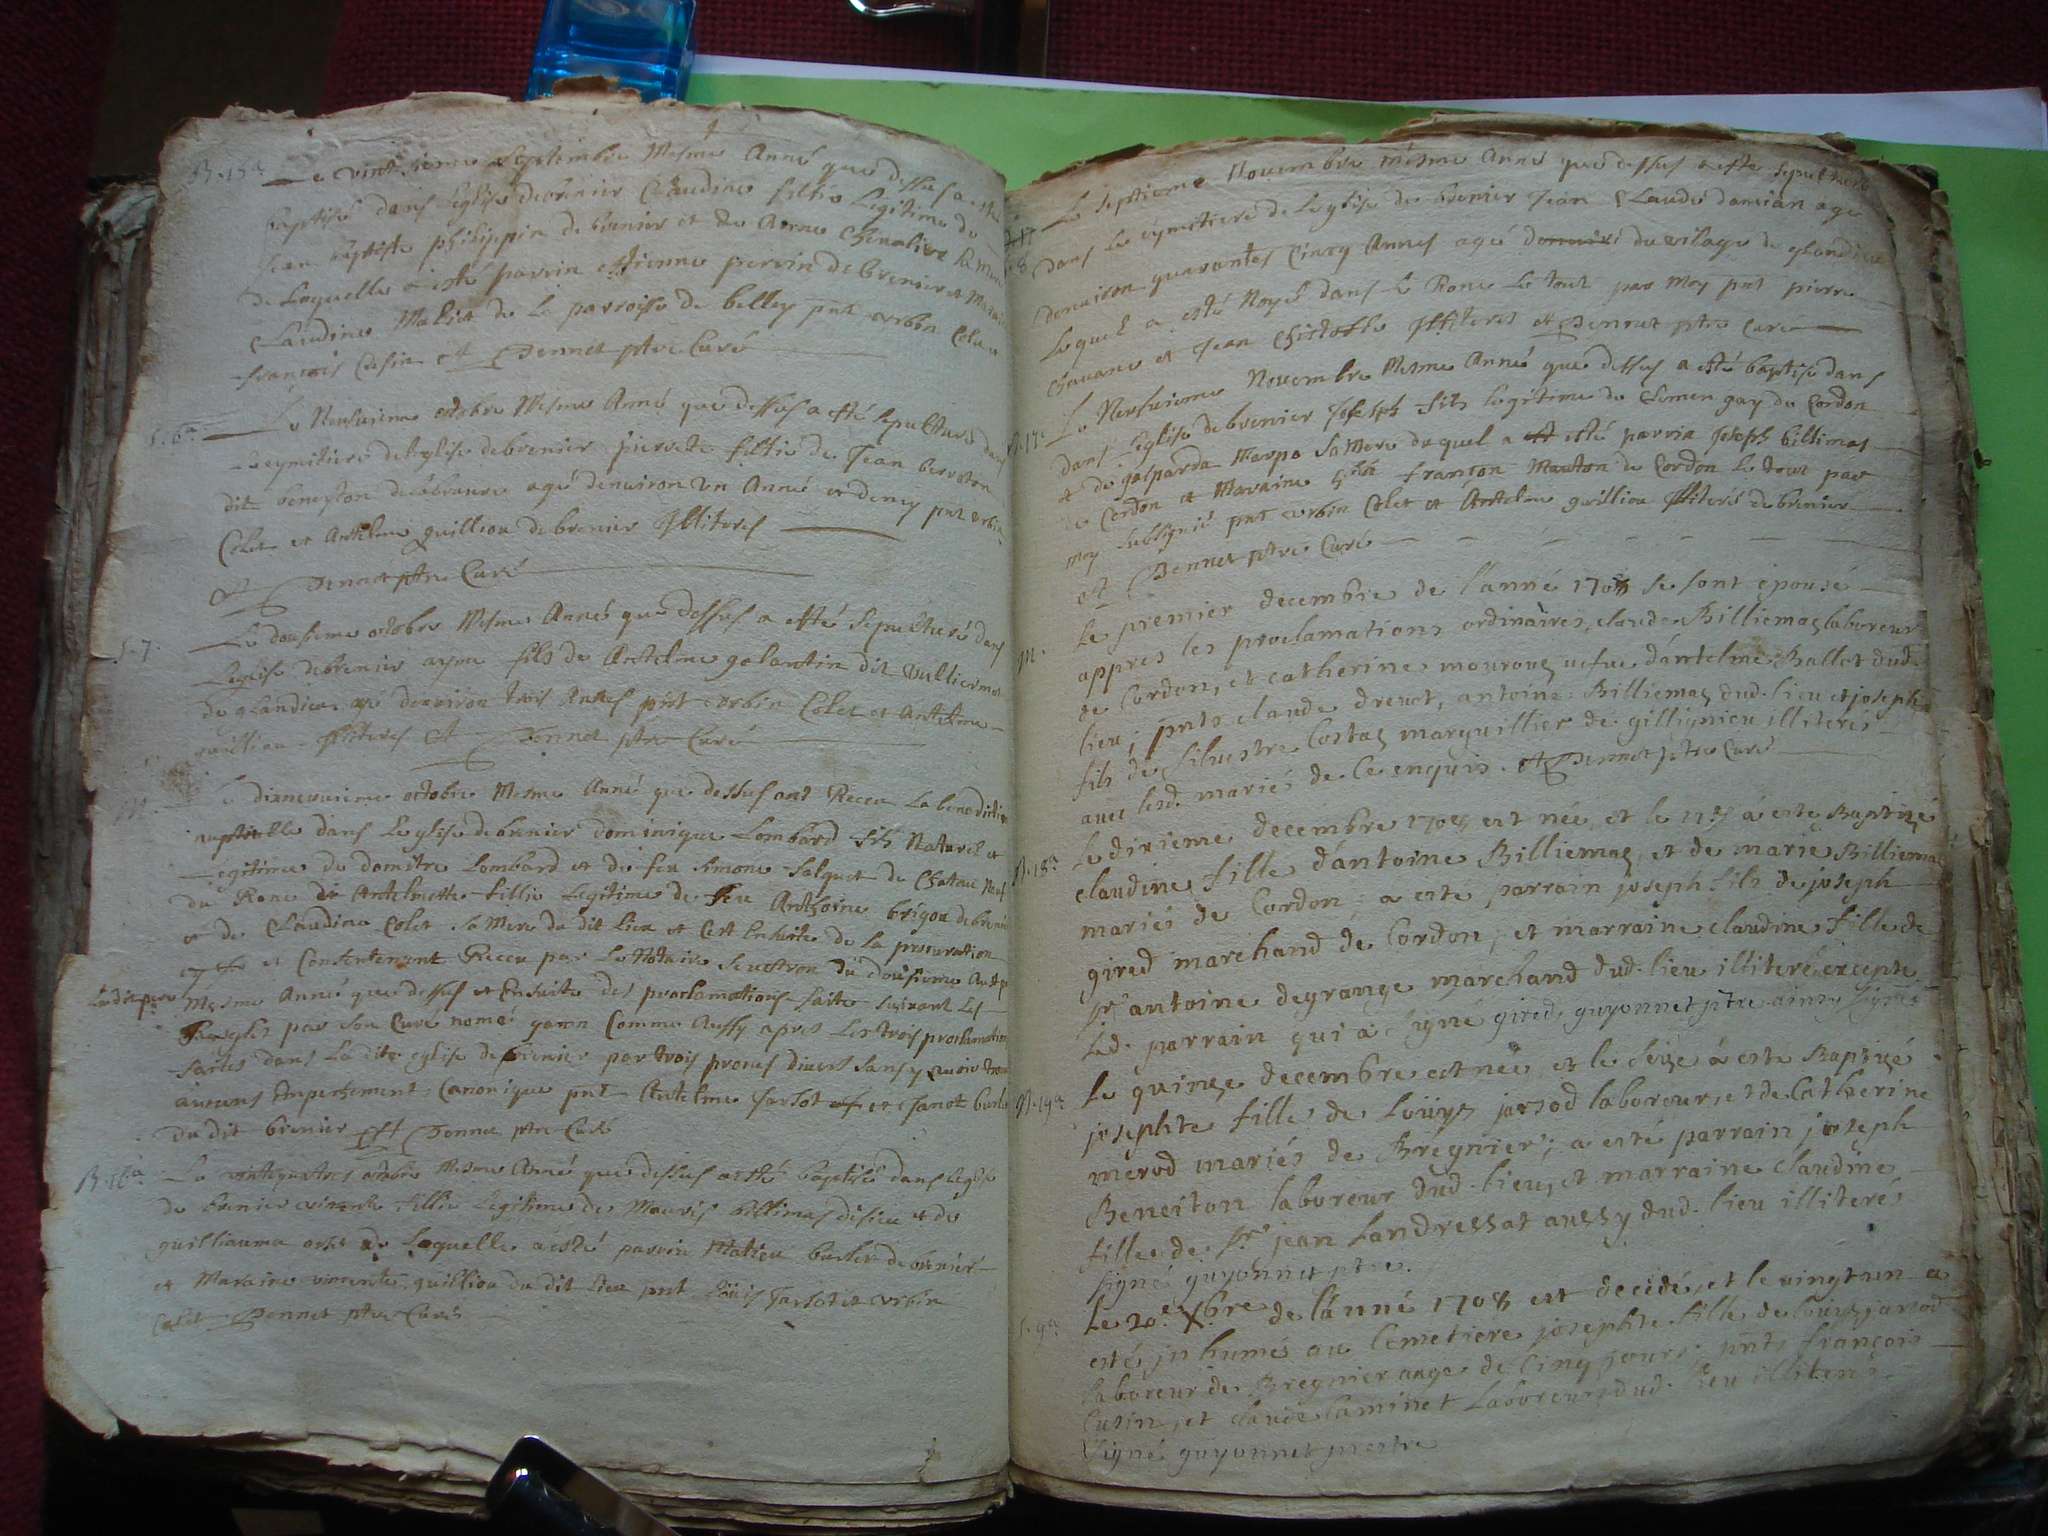 B. 15e Le vint septembre mesme Anné que dessus a esté
baptisée dans leglise de brenier Claudine fillie Legitime de
Jean baptiste philippin de brenier et de Chevalier sa mere
de Laquelle a esté parrin estienne perrin de brenier et
Claudine Maliet de La parroisse de belley pnt urbin Colet et
françois Cusin et Dennet ptre Curé
Le Neufvieme octobre Mesme Anné que dessus a esté sepulturé dans
Le cymitiere de leglise de brenier pierrete fillie de Jean berroton
dit beneyton agé denviron un Anné et demy pnt urbin
Colet et Antelme guillion de brenier Illiteres
et Dennet ptre Curé
S. 7. Le dousieme octobre Mesme Anné que dessus a esté sepulturé dans
Leglise de brenier ayme fils de Antelme galantin dit vulliermot
de glandieu agé denviron trois Annes pnt urbin Colet et Antelme
guillion Illiteres et Dennet ptre Curé
M Le dixneuvieme octobre Mesme Anné que dessus ont Receu La benediction
nuptielle dans Leglise de brenier dominique Lombard fils Naturel et
Legitime de domitre Lombard et de feu simone salquet de Chateau Neuf
du Rone et Antelmette fillie Legitime de feu Anthoine brigon de brenier
et de Claudine Colet sa Mere du dit Lieu et Cest Ensuite de la procuration
et Consentement Receu par Le Notaire du dousieme
Ladit pere Mesme Anné que dessus et Ensuite des proclamations faite suivant Les
Reigles par son Curé nomé Comme Aussy apres Les trois proclamations
faites dans La dite eglise de brenier par trois prones divers sans y avoir
aucuns Enpechement Canonique pnt Antelme Jarsot et Janot
du dit brenier Et Dennet ptre Curé
B. 16e Le vintquatre octobre Mesme Anné que dessus a esté baptisé dans leglise
de brenier vincente fillie Legitime de Mauris billimas disieu et de
guilliauma de Laquelle a esté parrin Matieu de brenier
et Maraine vincente guillion du dit Lieu pnt Louis Jarsot et urbin
Colet Dennet ptre Curé
Le septieme Novembre mesme Anné que dessus a esté sepulturé
dans Le cymitiere de Leglise de brenier Jean Claude damian agé
denviron quarantes Cincq Annes du vilage de glandieu
Lequel a esté Noyé dans Le Rone Le tout par Moy pnt pierre
Chavane et Jean Christoble Illiteres et Dennet ptre Curé
B. 17e Le Neufvieme Novembre Mesme Anné que dessus a esté baptise dans
dans Leglise de brenier Joseph fils legitime de Clemen gay de Cordon
et de gasparda Marpo sa Mere duquel a esté parrin Joseph billimas
de Cordon et Maraine françon Mauton de Cordon Le tout par
moy soubsigné pnt urbin Colet et Antelme guillion Illiteres de brenier
et Dennet ptre Curé
M. Le premier decembre de l'anné 1708 se sont epousé
appres les proclamations ordinaires, claude Billiemaz laboreur
de Cordon, et catherine mourouz vefue d'antelme Ballet dud.
lieu; pnts claude drevet, antoine Billiemaz dud. lieu et joseph
fils de silvestre Costaz marguillier de gillignieu illiterés
avec lesd. mariés de ce enquis. et Dennet ptre Curé
B. 18e Le dixieme decembre 1708 est née, et le 11e a esté Baptizé
claudine fille d'antoine Billiemaz, et de marie Billiemaz
mariés de Cordon; a esté parrain joseph fils de joseph
gired marchand de Cordon; et marraine claudine fille de
sr antoine degrange marchand dud. lieu illiteré excepte
led. parrain qui a signé gired, guyonnet ptre ainsy signés
B. 19e Le quinze decembre est née, et le seize a esté Baptizé
josephte fille de Loüys jarsod laboreur, et de Catherine
merod mariés de Bregnier; a esté parrain joseph
Beneiton laboreur dud. lieu, et marraine claudine
fille de sr jean Landressat aussy dud. lieu illiterés
signé guyonnet ptre.
S. 9e Le 20e Xbre de l'anné 1708 est decedé, et le vingt un a
esté inhumé au Cemetiere josephte fille de Louys jarsod
laboreur de Bregnier aagé de cinq jours; pnts françois
Cusin, et claude Caminet Laboreurs dud. lieu illiterés
signé guyonnet prestre